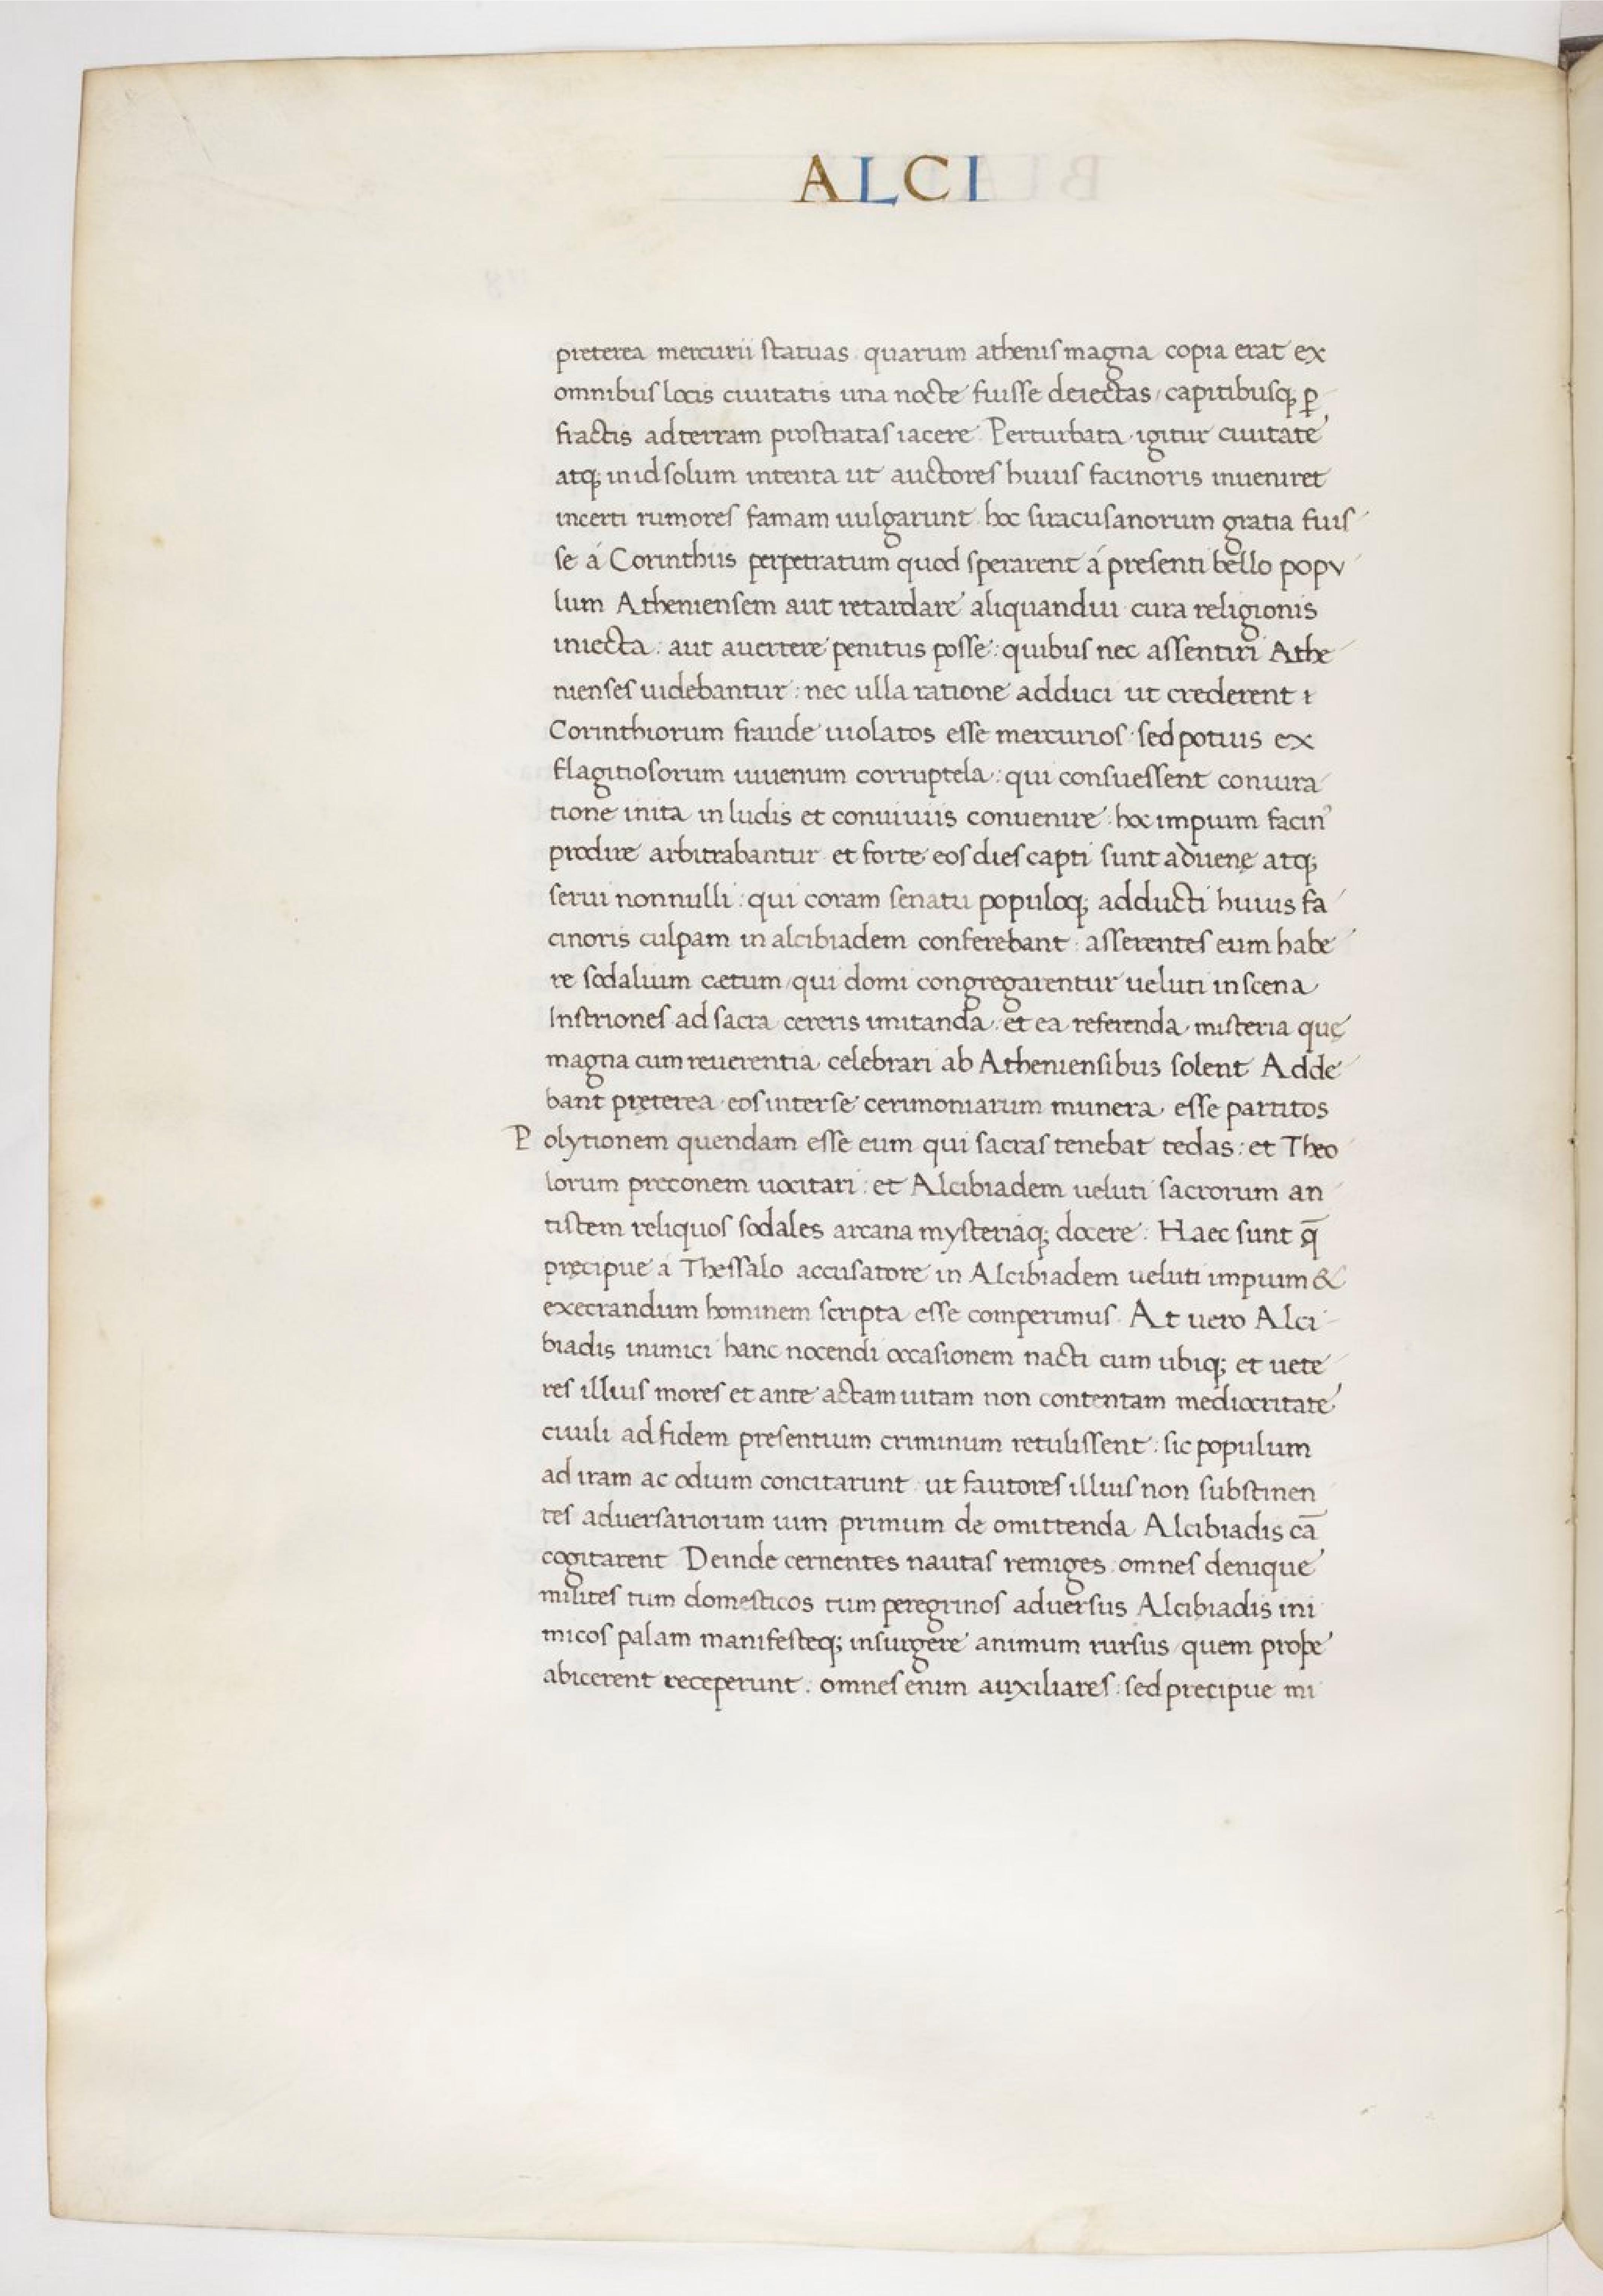 ALCI
preterea mercurii statuas quarum athenis magna copia erat ex
omnibus locis ciuitatis una nocte fuisse deiectas / capitibusq; ꝑ
fractis ad terram prostratas iacere Perturbata igitur ciuitate
atq; in id solum intenta ut auctores huius facinoris inueniret
incerti rumores famam uulgarunt hoc siracusanorum gratia fuis
se á Corinthiis perpetratum quod sperarent á presenti bello popu
lum Atheniensem aut retardare aliquandiu cura religionis
iniecta : aut auertere penitus posse : quibus nec assentiri Athe
nienses uidebantur : nec ulla ratione adduci ut crederent
Corinthiorum fraude uiolatos esse mercurios sed potius ex
flagitiosorum iuuenum corruptela : qui consuessent coniura
tione inita in ludis et conuiuiis conuenire : hoc impium facinꝰ
prodire arbitrabantur et forte eos dies capti sunt aduenę atq;
serui nonnulli : qui coram senatu populoq; adducti huius fa
cinoris culpam in alcibiadem conferebant : asserentes eum habe
re sodalium cætum / qui domi congregarentur ueluti in scena
Instriones ad sacra cereris imitanda et ea referenda misteria quę
magna cum reuerentia celebrari ab Atheniensibus solent Adde
bant pręterea eos inter se cerimoniarum munera esse partitos
Polytionem quendam esse eum qui sacras tenebat tedas : et Theo
lorum preconem uocitari : et Alcibiadem ueluti sacrorum an
tistem reliquos sodales arcana mysteriaq; docere : Haec sunt q̄
pręcipue á Thessalo accusatore in Alcibiadem ueluti impium &
execrandum hominem scripta esse comperimus At uero Alci
biadis inimici hanc nocendi occasionem nacti cum ubiq; et uete
res illius mores et ante actam uitam non contentam mediocritate
ciuili ad fidem presentium criminum retulissent : sic populum
ad iram ac odium concitarunt ut fautores illius non substinen
tes aduersariorum uim primum de omittenda Alcibiadis cā
cogitarent Deinde cernentes nautas remiges omnes denique
milites tum domesticos tum peregrinos aduersus Alcibiadis ini
micos palam manifesteq; insurgere animum rursus / quem prope
abicerent receperunt : omnes enim auxiliares : sed precipue mi